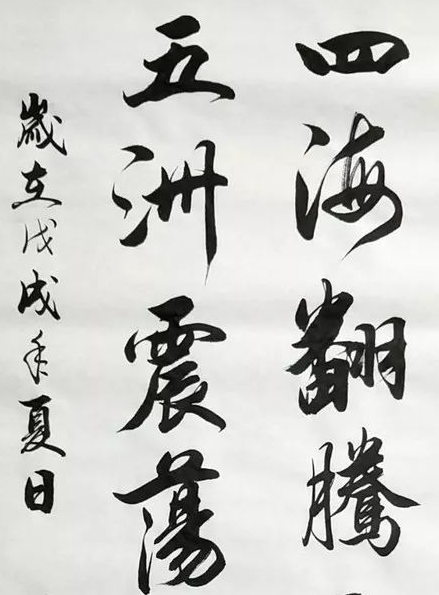 四海翻騰
五洲震蕩
歲在戊戌年夏日